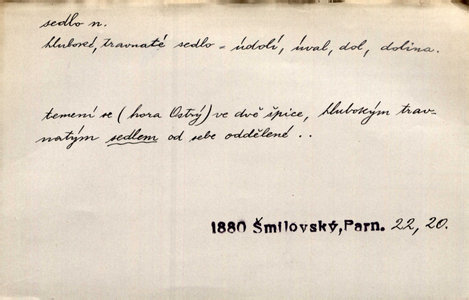 sedlo n.
hluboké, travnaté sedlo - údolí, úval, dol, dolina.
temení se (hora Ostrý) ve dvě špice, hlubokým trav-
natým sedlem od sebe oddělené . .
1880 Šmilovský, Parn. 22, 20.